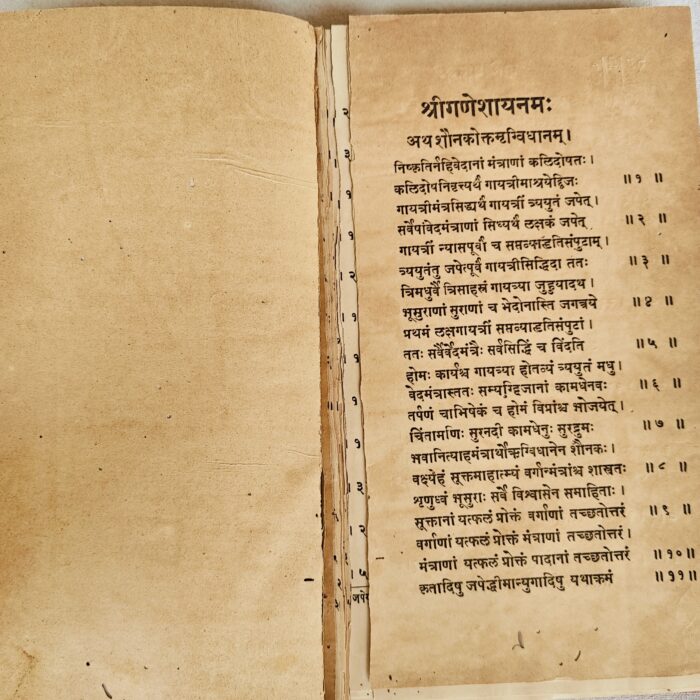 श्रीगणेशायनमः
अथ शौनकोक्तमृग्विधानम् ।
निष्कृतिर्नहिवेदानां मंत्राणां कलिदोषतः ।
कलिदोषनिवृत्त्यर्थं गायत्रीमाश्रयेद्द्विजः ॥ १ ॥
गायत्रीमंत्रसिद्ध्यर्थं गायत्रीं त्र्ययुतं जपेत् ।
सर्वेषांवेदमंत्राणां सिध्यर्थं लक्षकं जपेत् ॥ २ ॥
गायत्रीं न्यासपूर्वां च सप्तव्याहृतिसंपुटाम् ।
त्र्ययुतंतु जपेत्पूर्वं गायत्रीसिद्धिदा ततः ॥ ३ ॥
त्रिमधुर्वै त्रिसाहस्रं गायत्र्या जुहुयादथ ।
भूसुराणां सुराणां च भेदोनास्ति जगत्रये ॥ ४ ॥
प्रथमं लक्षगायत्रीं सप्तव्याहृतिसंपुटां ।
ततः सर्वैर्वेदमंत्रैः सर्वसिद्धिं च विंदति ॥ ५ ॥
होमः कार्यश्च गायत्र्या होतव्यं त्र्ययुतं मधु ।
वेदमंत्रास्ततः सम्यग्द्विजानां कामधेनवः ॥ ६ ॥
तर्पणं चाभिषेकं च होमं विप्रांश्च भोजयेत् ।
चिंतामणिः सुरनदी कामधेनुः सुरद्रुमः ॥ ७ ॥
भवानित्याहमंत्रार्थोऋग्विधानेन शौनकः ।
वक्ष्येहं सूक्तमाहात्म्यं वर्गान्मंत्रांश्च शास्त्रतः ॥ ८ ॥
शृणुध्वं भूसुराः सर्वे विश्वासेन समाहिताः ।
सूक्तानां यत्फलं प्रोक्तं वर्गाणां तच्छतोत्तरं ॥ ९ ॥
वर्गाणां यत्फलं प्रोक्तं मंत्राणां तच्छतोत्तरं ।
मंत्राणां यत्फलं प्रोक्तं पादानां तच्छतोत्तरं ॥ १० ॥
कृतादिषु जपेद्धीमान्युगादिषु यथाक्रमं ॥ ११ ॥